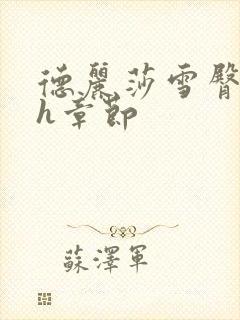 德麗莎雪臀
h章節
蘇澤軍